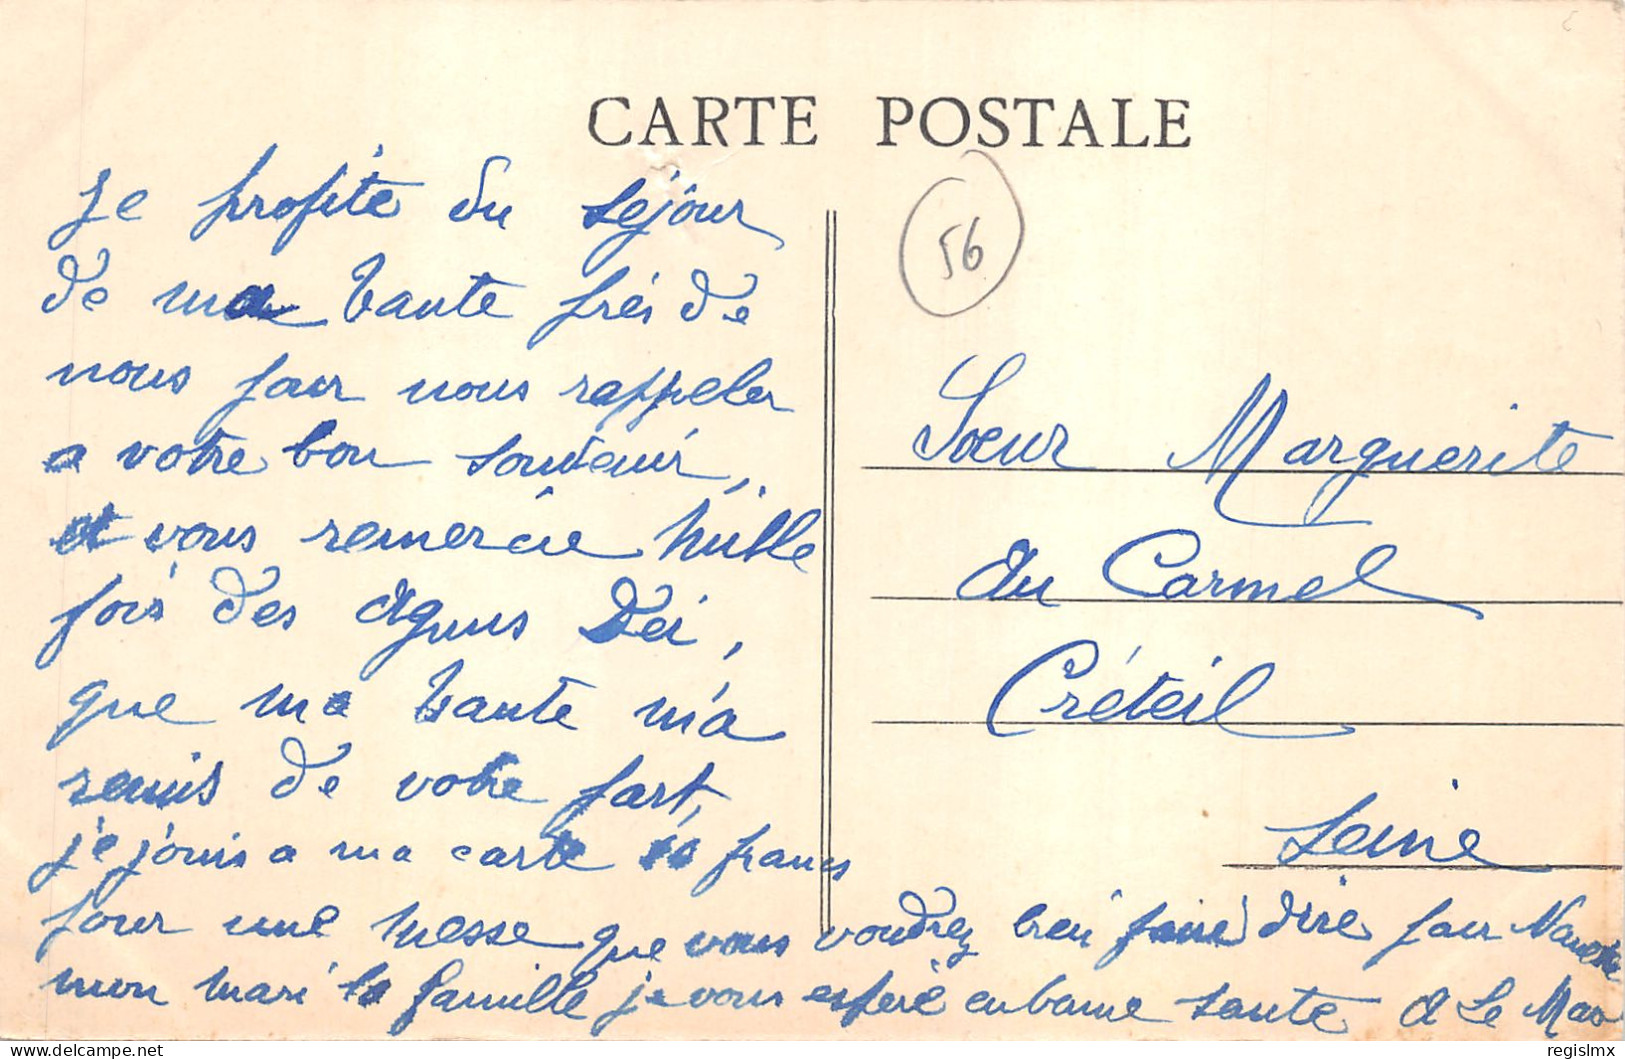 CARTE POSTALE
Je profite du séjour
de ma tante près de
nous pour nous rappeler
a votre bon souvenir,
et vous remercie mille
fois des Agnus Dei,
que ma tante m'a
remis de votre part,
je jouis a ma carte 10 francs
pour une messe que vous voudrez bien faire dire pour
mon mari la famille je vous espère en bonne santé
56
Soeur Marguerite
du Carmel
Créteil
Seine
regislmx